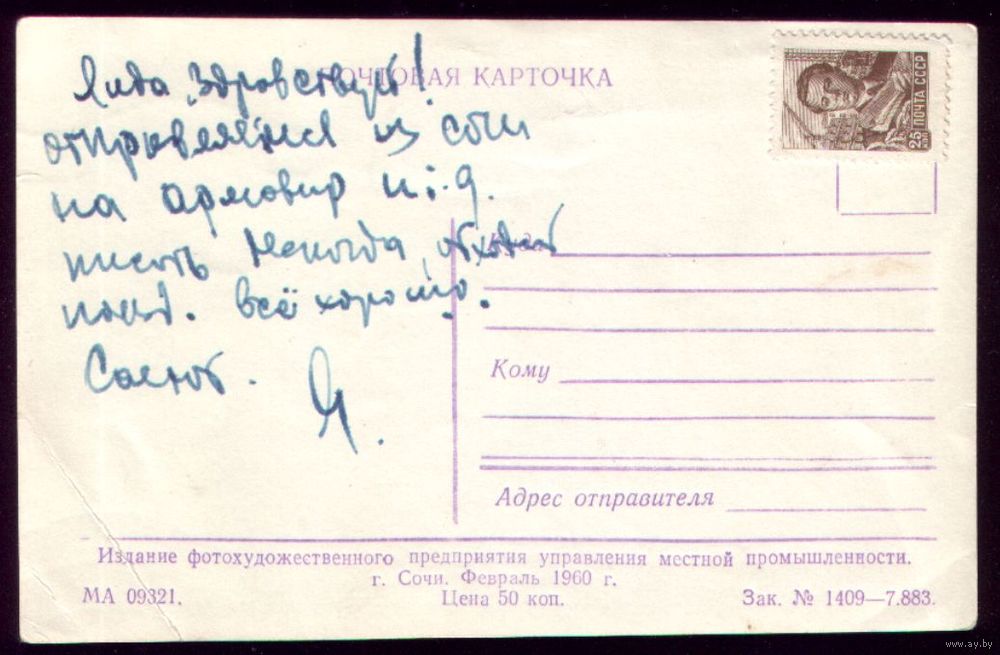 ПОЧТОВАЯ КАРТОЧКА
Лида, здравствуй!
отправляемся из сочи
на армавир и т.д.
писать некогда, отходит
поезд. всё хорошо.
Салют.
Я.
25 КОП ПОЧТА СССР
Куда
Кому
Адрес отправителя
Издание фотохудожественного предприятия управления местной промышленности.
г. Сочи. Февраль 1960 г.
МА 09321. Цена 50 коп. Зак. № 1409—7.883.
www.ay.by